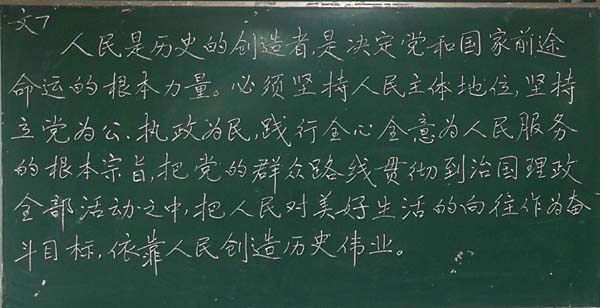 文7
人民是历史的创造者,是决定党和国家前途
命运的根本力量。必须坚持人民主体地位,坚持
立党为公、执政为民,践行全心全意为人民服务
的根本宗旨,把党的群众路线贯彻到治国理政
全部活动之中,把人民对美好生活的向往作为奋
斗目标,依靠人民创造历史伟业。